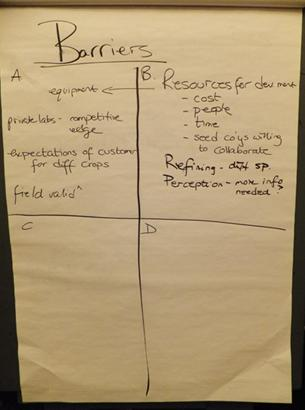 Barriers
A
equipment
private labs - competitive
edge
expectations of custom
for diff crops
field valid^n
B.
Resources for dev ment
- cost
- people
- time
- seed co'ys willing
to collaborate
Refining - diff sp
Perception - more info
needed
C
D